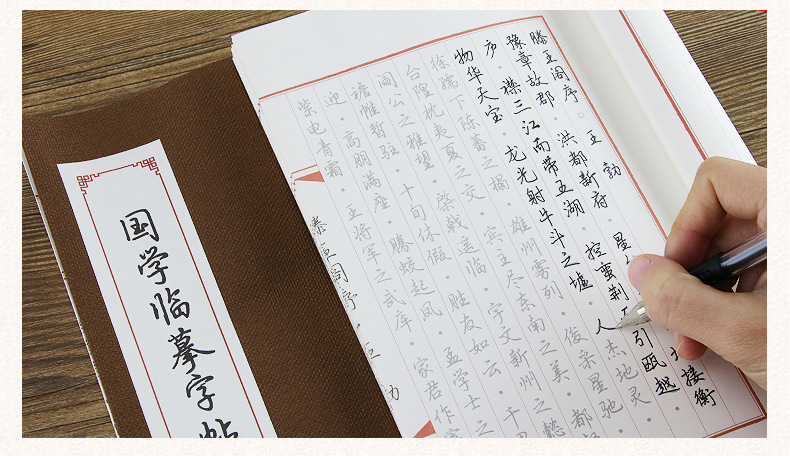 国学临摹字帖
滕王阁序 王 勃
豫章故郡 洪都新府 星 接衡
庐 襟三江而带五湖 控蛮荆 引瓯越
物华天宝 龙光射牛斗之墟 人杰地灵
徐孺下陈蕃之榻 雄州雾列 俊采星驰
台隍枕夷夏之交 宾主尽东南之美 都
阎公之雅望 棨戟遥临 宇文新州之懿
襜帷暂驻 十旬休假 胜友如云 千
迎 高朋满座 腾蛟起凤 孟学士之
紫电青霜 王将军之武库 家君作宰